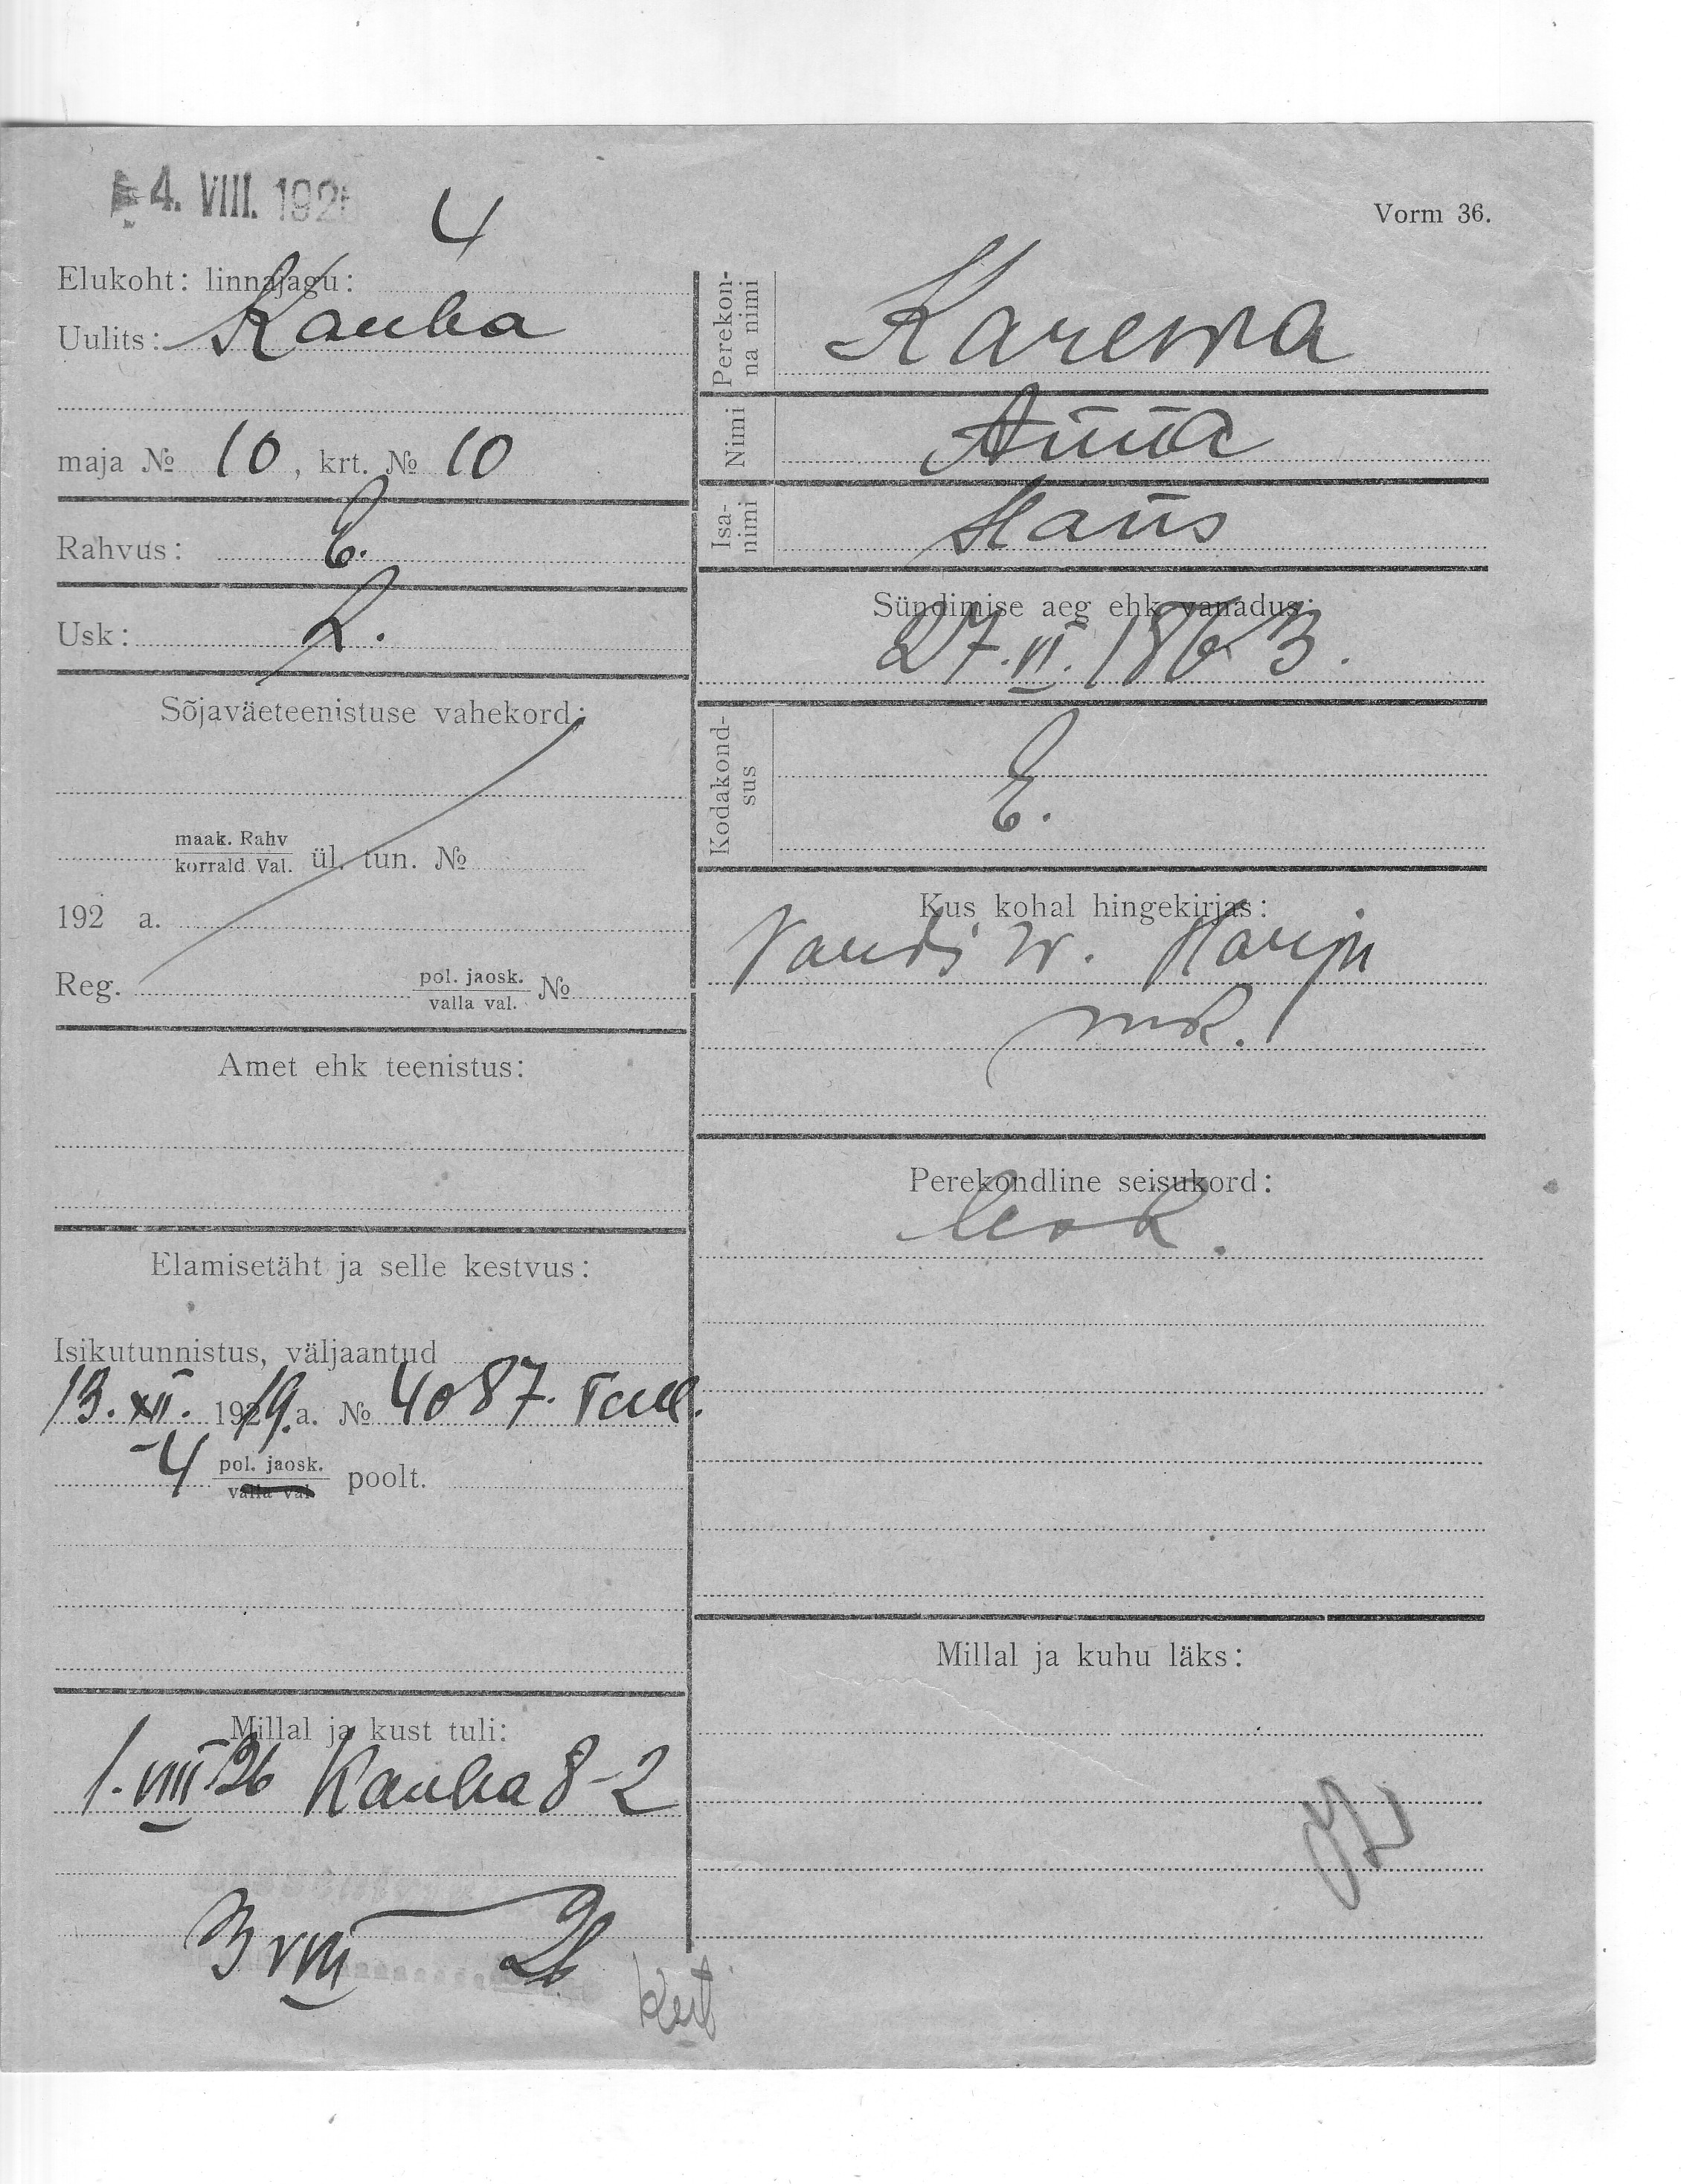 4. VIII. 192
4
Vorm 36.
Elukoht: linnajagu:
Uulits: Kauba
maja № 10, krt. № 10
Rahvus: E.
Usk: L.
Sõjaväeteenistuse vahekord:
maak. Rahv
korrald. Val. ül. tun. №
192 a.
Reg. pol. jaosk.
valla val. №
Amet ehk teenistus:
Elamisetäht ja selle kestvus:
Isikutunnistus, väljaantud
13. XII. 1919. a. № 4087. Tall.
4 pol. jaosk.
valla val poolt.
Millal ja kust tuli:
1. VIII 26 Kauba 8-2
3 VIII 26
Perekon-
na nimi
Karewa
Nimi
Anna
Isa-
nimi
Hans
Sündimise aeg ehk vanadus:
27. VI. 1863.
Kodakond-
sus
E.
Kus kohal hingekirjas:
W. Harju
mk.
Perekondline seisukord:
lesk.
Millal ja kuhu läks: